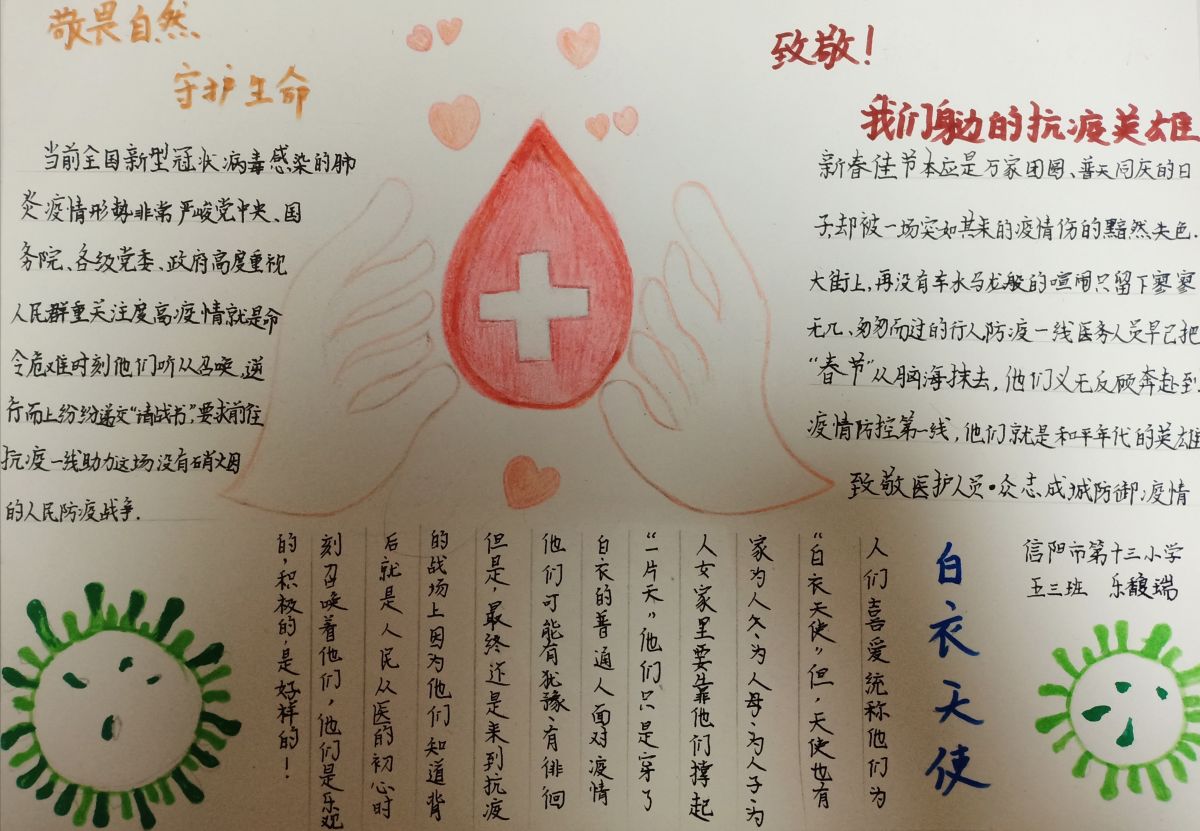 敬畏自然
守护生命
当前全国新型冠状病毒感染的肺
炎疫情形势非常严峻党中央、国
务院、各级党委、政府高度重视
人民群重关注度高疫情就是命
令危难时刻他们听从召唤,逆
行而上纷纷递交“请战书”,要求前往
抗疫一线助力这场没有硝烟
的人民防疫战争.
致敬!
我们身边的抗疫英雄
新春佳节本应是万家团圆、普天同庆的日
子,却被一场突如其来的疫情伤的黯然失色.
大街上,再没有车水马龙般的喧闹只留下寥寥
无几、匆匆而过的行人防疫一线医务人员早已把
“春节”从脑海抹去,他们义无反顾奔赴至
疫情防控第一线,他们就是和平年代的英雄
致敬医护人员·众志成城防御疫情
信阳市第十三小学
五三班 乐馥瑞
白衣天使
人们喜爱统称他们为
“白衣天使”但,天使也有
家为人父、为人母、为人子、为
人女家里要靠他们撑起
“一片天”他们只是穿了
白衣的普通人面对疫情
他们可能有犹豫、有徘徊
但是,最终还是来到抗疫
的战场上因为他们知道背
后就是人民从医的初心时
刻召唤着他们,他们是乐观
的,积极的是好样的!